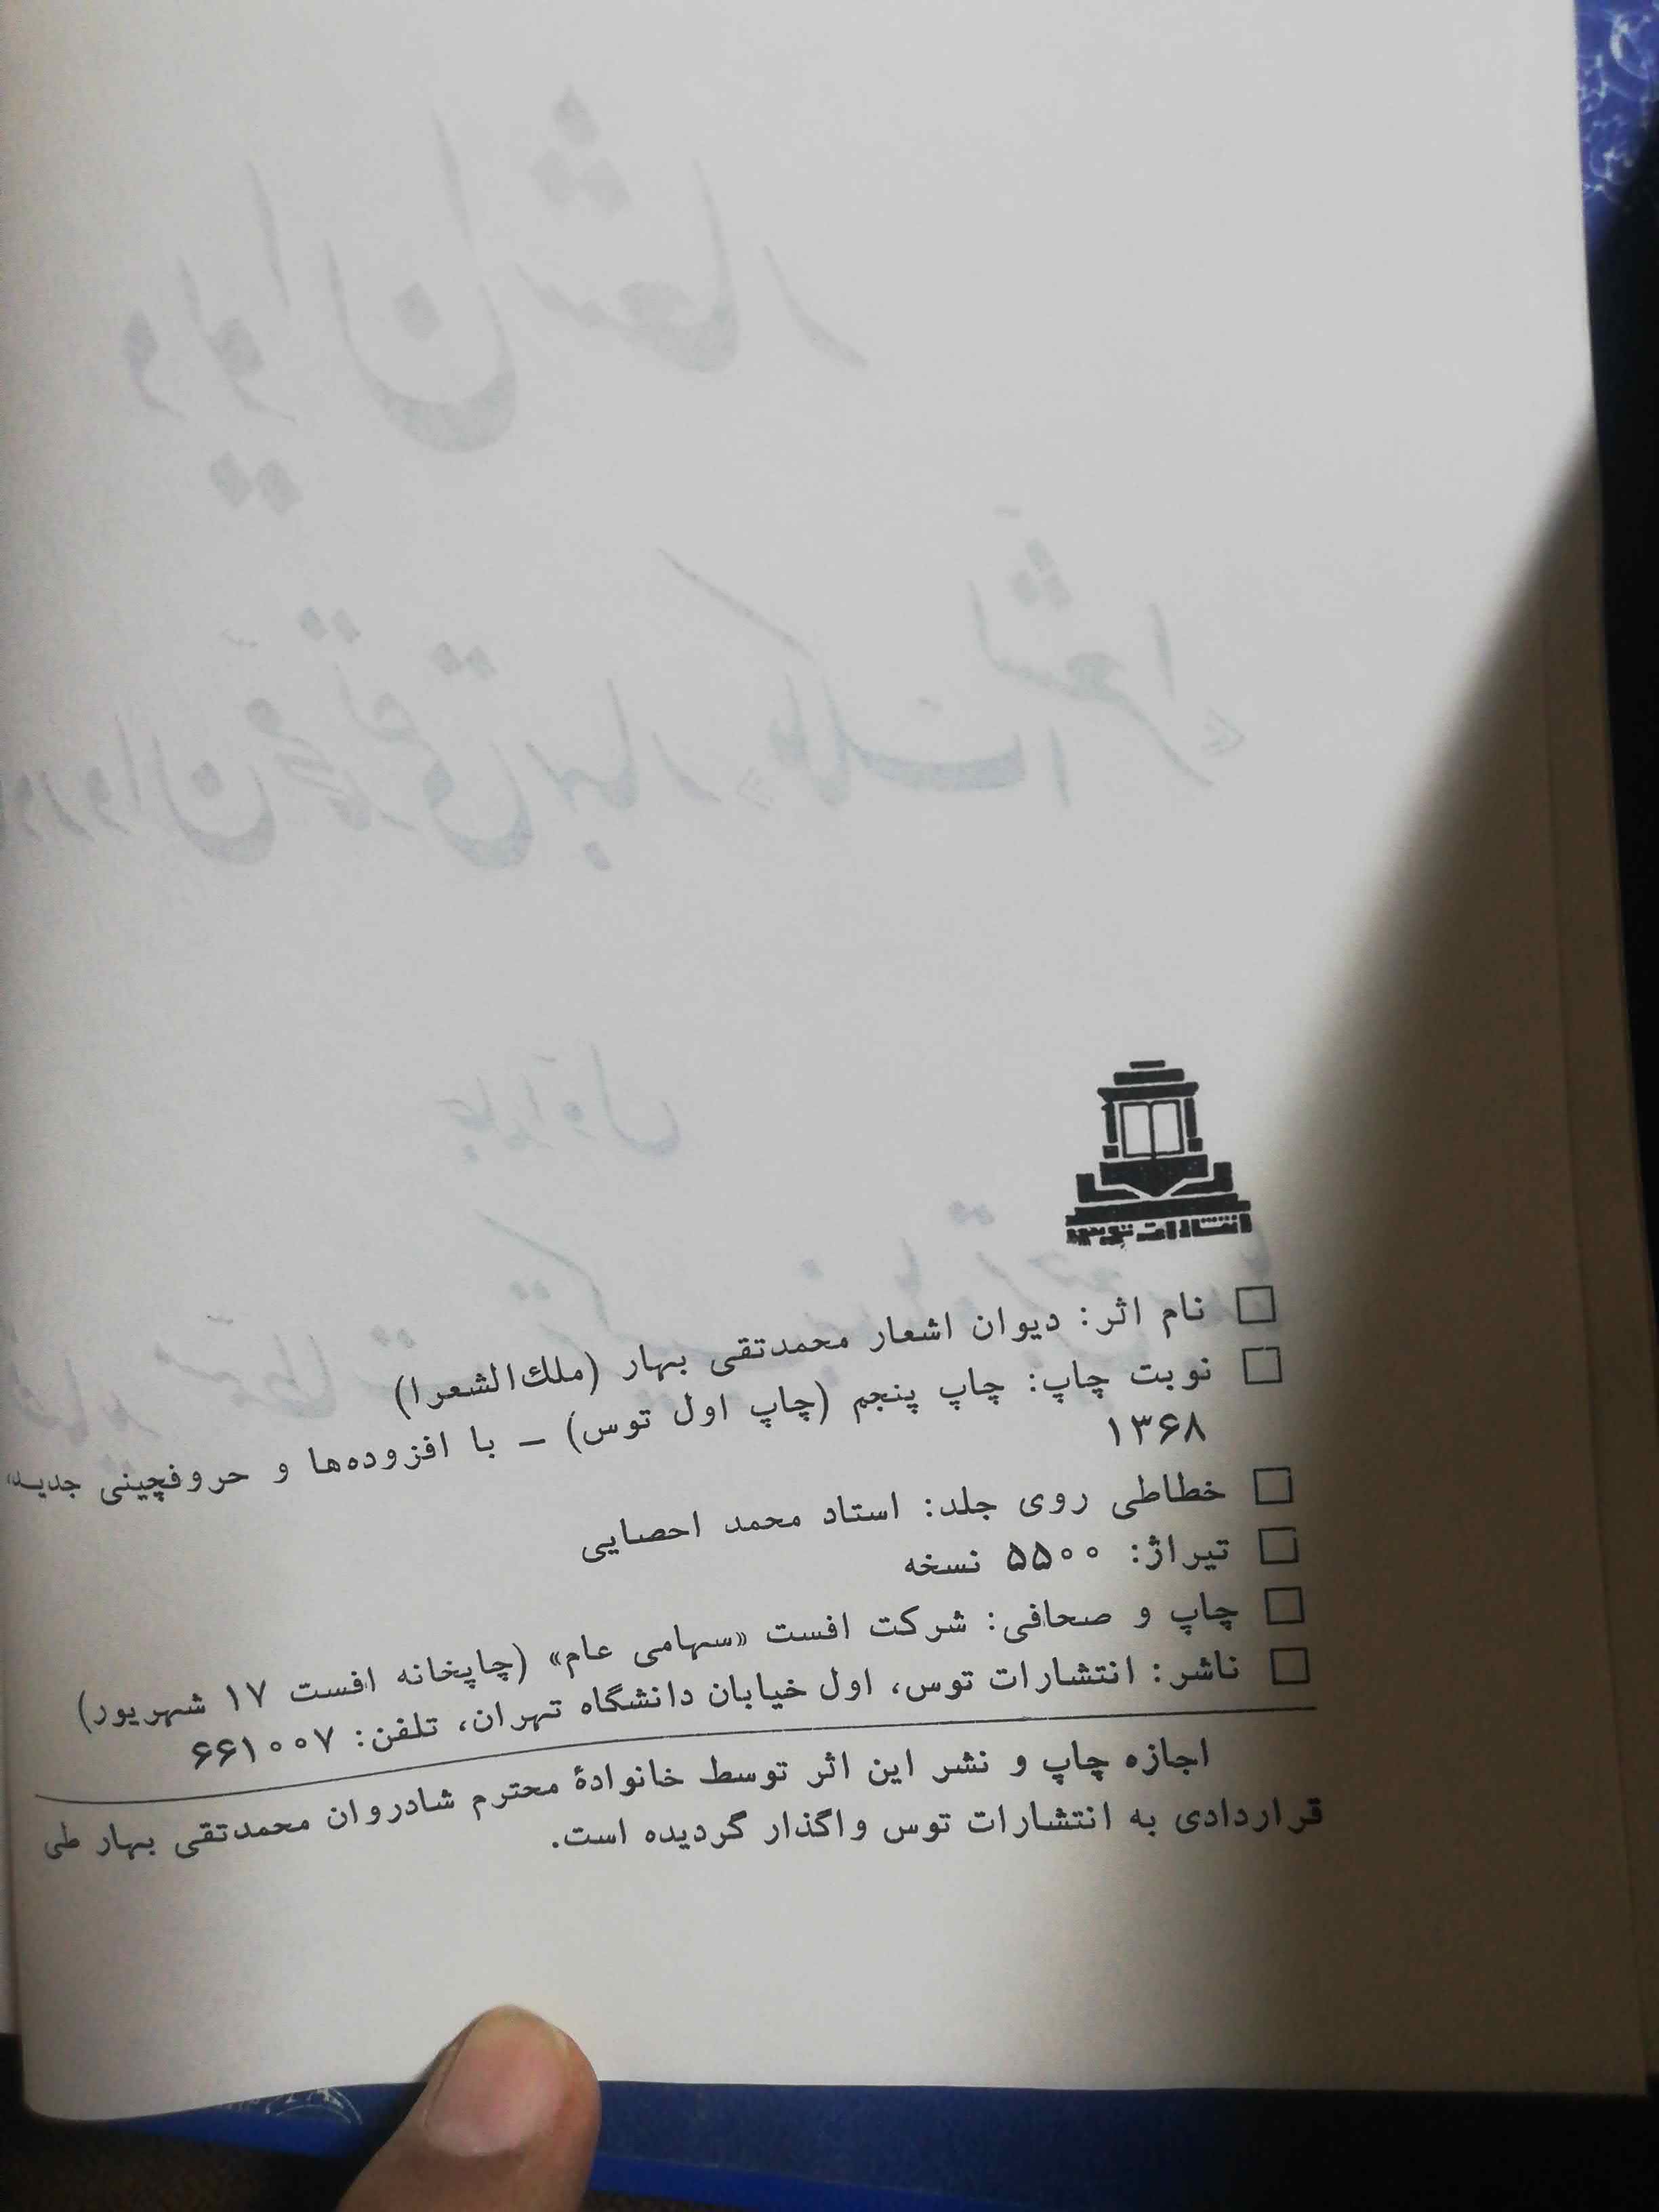 انتشارات توس
نام اثر: دیوان اشعار محمدتقی بهار (ملك‌الشعرا)
نوبت چاپ: چاپ پنجم (چاپ اول توس) – با افزوده‌ها و حروفچینی جدید،
۱۳۶۸
خطاطی روی جلد: استاد محمد احصایی
تیراژ: ۵۵۰۰ نسخه
چاپ و صحافی: شرکت افست «سهامی عام» (چاپخانه افست ۱۷ شهریور)
ناشر: انتشارات توس، اول خیابان دانشگاه تهران، تلفن: ۶۶۱۰۰۷
اجازه چاپ و نشر این اثر توسط خانوادهٔ محترم شادروان محمدتقی بهار طی
قراردادی به انتشارات توس واگذار گردیده است.